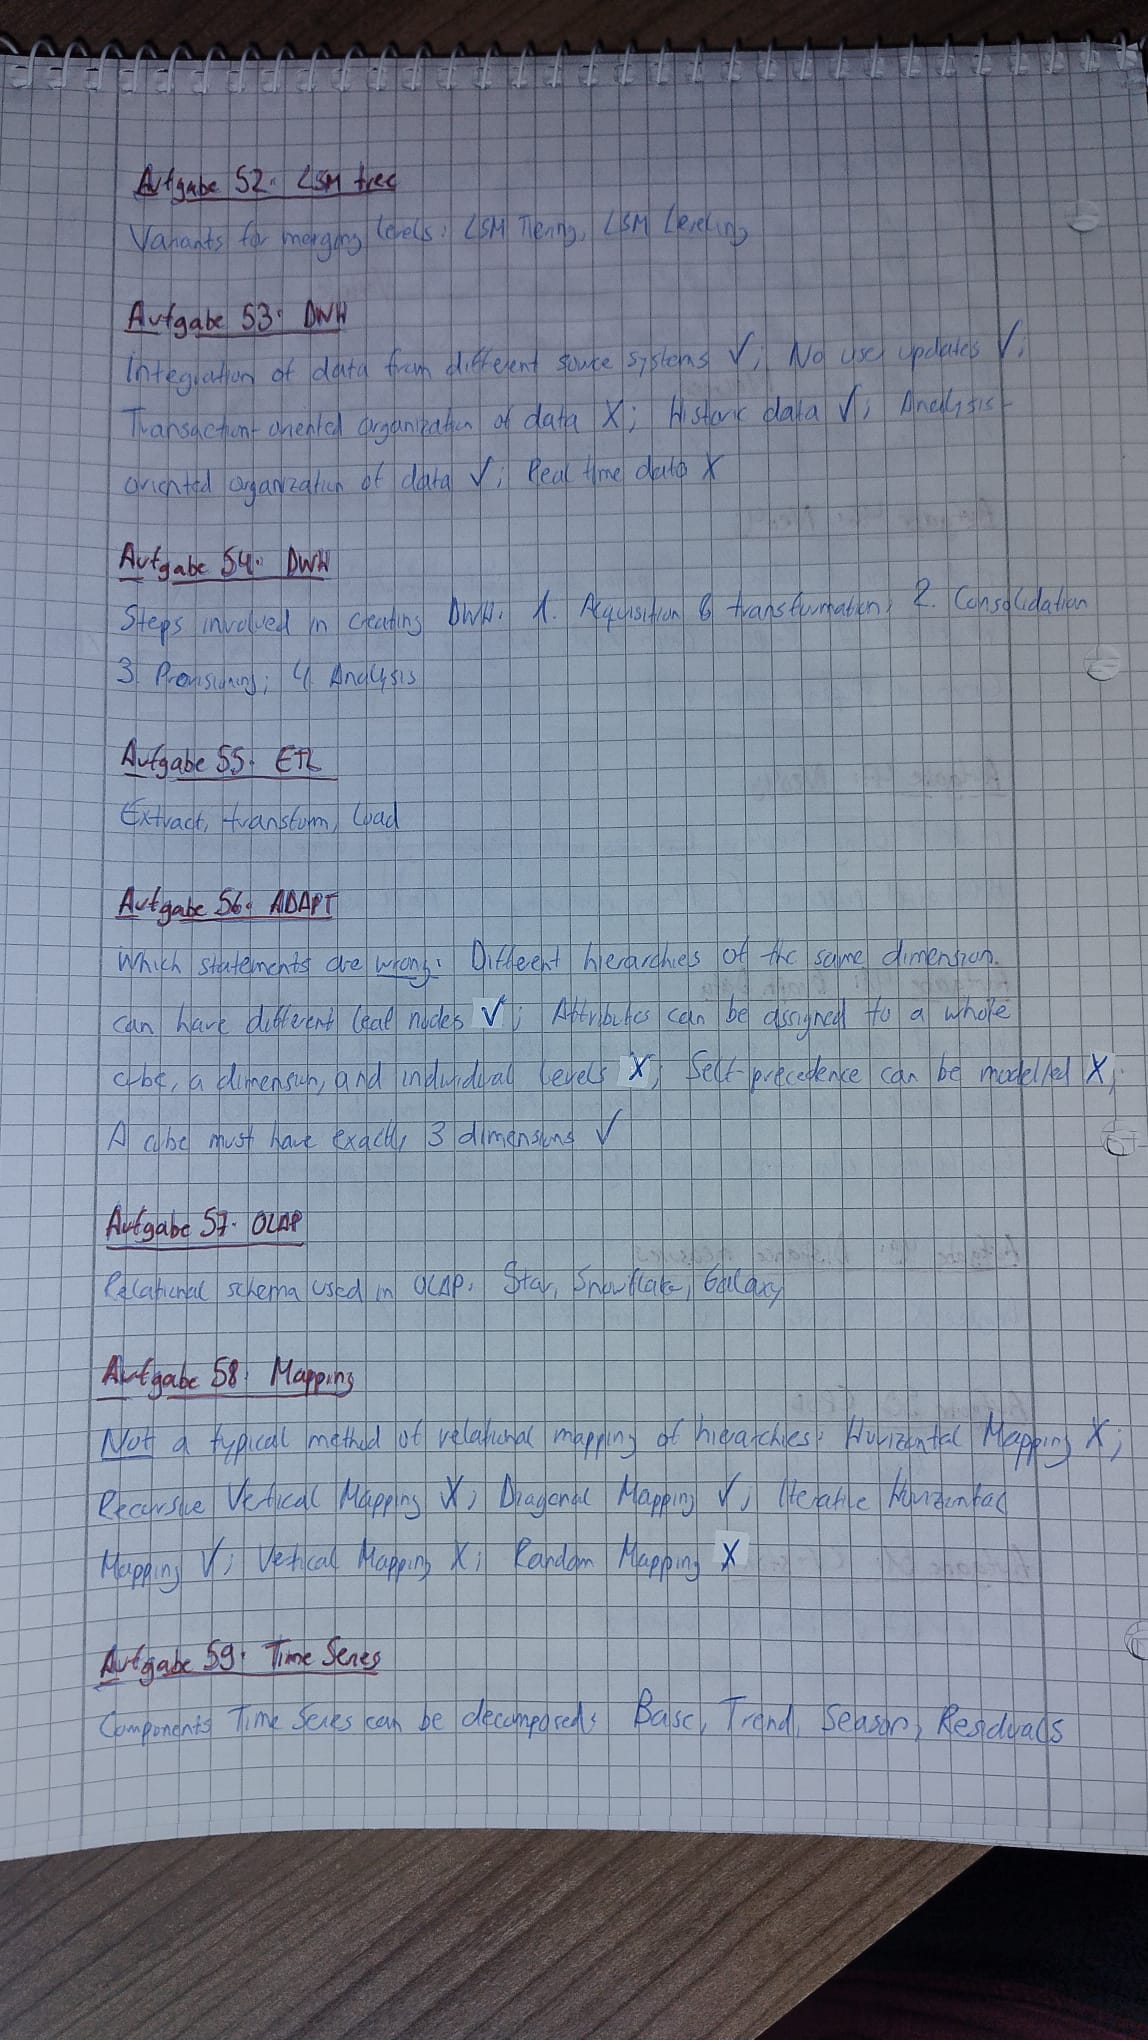 Aufgabe 52: LSM tree
Variants for merging levels: LSM Tiering, LSM Leveling
Aufgabe 53: DWH
Integration of data from different source systems ✓; No user updates ✓;
Transaction-oriented organization of data X; Historic data ✓; Analysis-
oriented organization of data ✓; Real time data X
Aufgabe 54: DWH
Steps involved in creating DWH: 1. Acquisition & transformation; 2. Consolidation
3. Provisioning; 4. Analysis
Aufgabe 55: ETL
Extract, transform, load
Aufgabe 56: ADAPT
Which statements are wrong: Different hierarchies of the same dimension
can have different leaf nodes ✓; Attributes can be assigned to a whole
cube, a dimension, and individual levels X; Self-precedence can be modelled X;
A cube must have exactly 3 dimensions ✓
Aufgabe 57: OLAP
Relational schema used in OLAP: Star, Snowflake, Galaxy
Aufgabe 58: Mapping
Not a typical method of relational mapping of hierarchies: Horizontal Mapping X;
Recursive Vertical Mapping X; Diagonal Mapping ✓; Iterative Horizontal
Mapping ✓; Vertical Mapping X; Random Mapping X
Aufgabe 59: Time Series
Components Time Series can be decomposed: Base, Trend, Season, Residuals